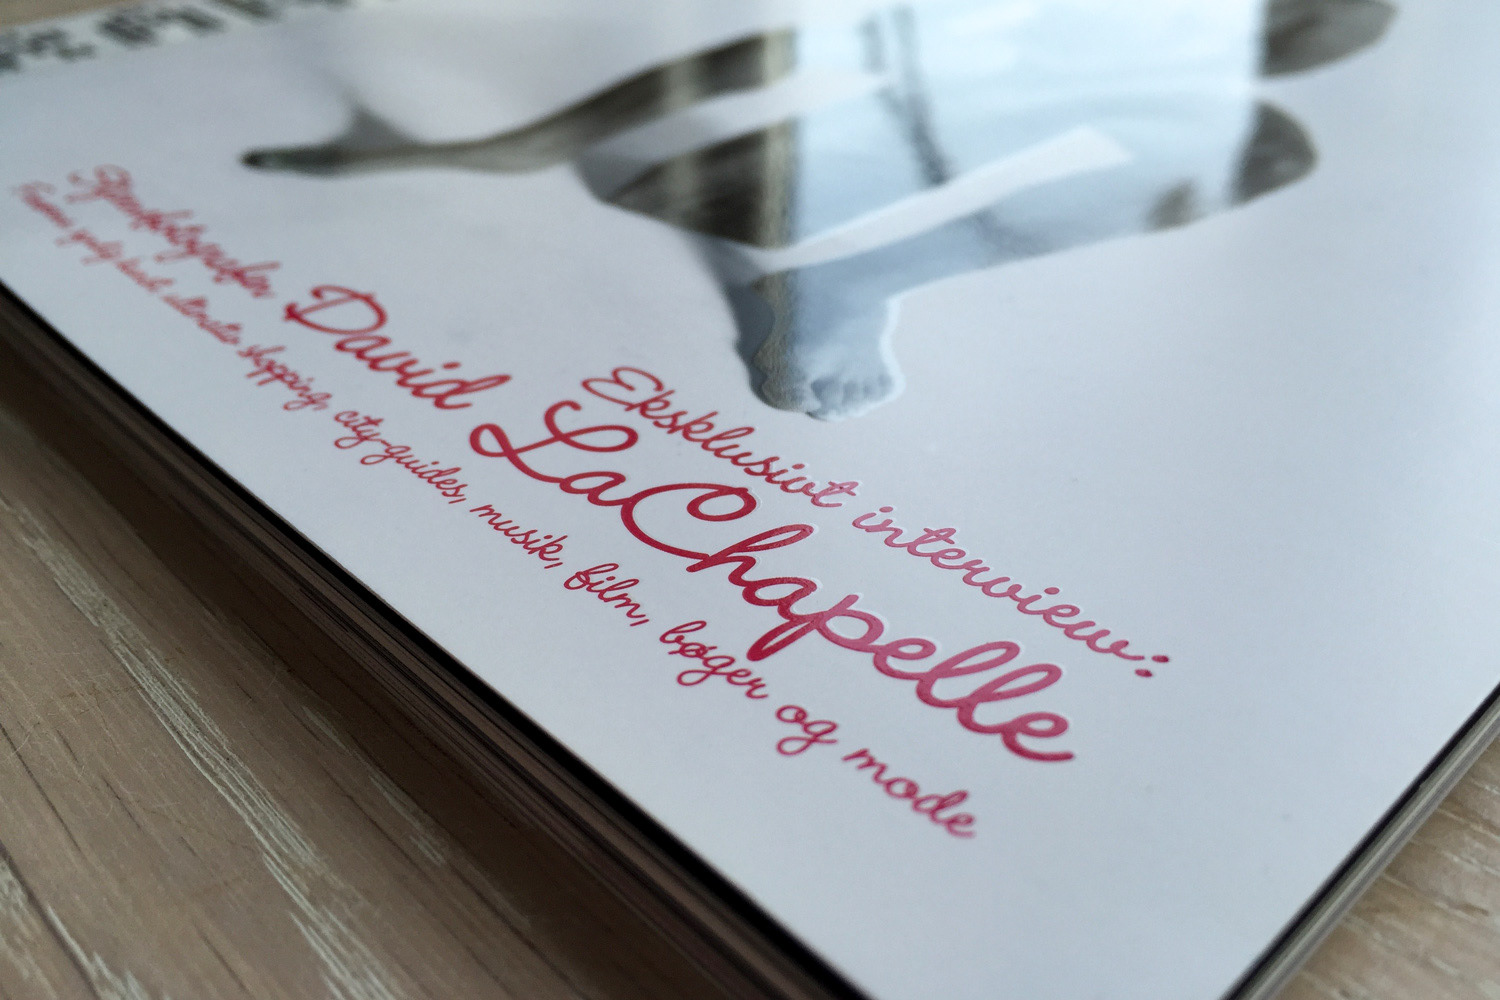 Eksklusivt interview:
Stjernefotografen David LaChapelle
shopping, city-guides, musik, film, bøger og mode